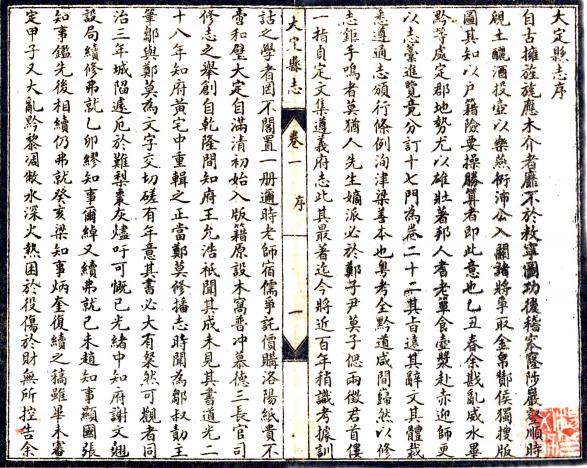 大定縣志序
自古擁旌旄應木介者靡不於敉寧圖功後稽察窿陟巖壑順時
覘土釃酒投壺以樂燕衎沛公入關諸將爭取金帛酇侯獨搜版
圖其知以户籍險要操勝算者即此意也乙丑春余戡亂威水畢
黔等處定郡地勢尤以雄壯著邦人耆老簞食壺漿赴迎師更
以志藳進覽竟分訂十七門為卷二十二其旨遠其辭文其體裁
悉遵通志頒行條例洵津梁善本也粵考全黔道咸間歸然以修
志鉅手鳴者莫猶人先生嫡派必於鄭子尹莫子偲兩徵君首僂
一指貞定文集遵義府志此其最著迄今將近百年稍識考據訓
大定縣志 卷一 序 一
詁之學者罔不閣置一册邇時老師宿儒爭託價購洛陽紙貴不
啻和璧大定自滿清初始入版籍原設木窩普冲慕德三長官司
修志之舉創自乾隆間知府王允浩祇聞其成未見其書道光二
十八年知府黃宅中重輯之正當鄭莫修播志時聞為鄒叔勣主
筆鄒與鄭莫為文字交切磋有年意其書必大有粲然可觀者同
治三年城陷遽厄於難梨棗灰燼吁可慨已光緒中知府謝文翹
設局續修弗就乙卯繆知事爾綽又續弗就己未趙知事顯國張
知事鑑先後相續仍弗就癸亥梁知事炳奎復續之稿雖畢未審
定甲子又大亂黔黎凋水深火熱困於役傷於財無所控告余